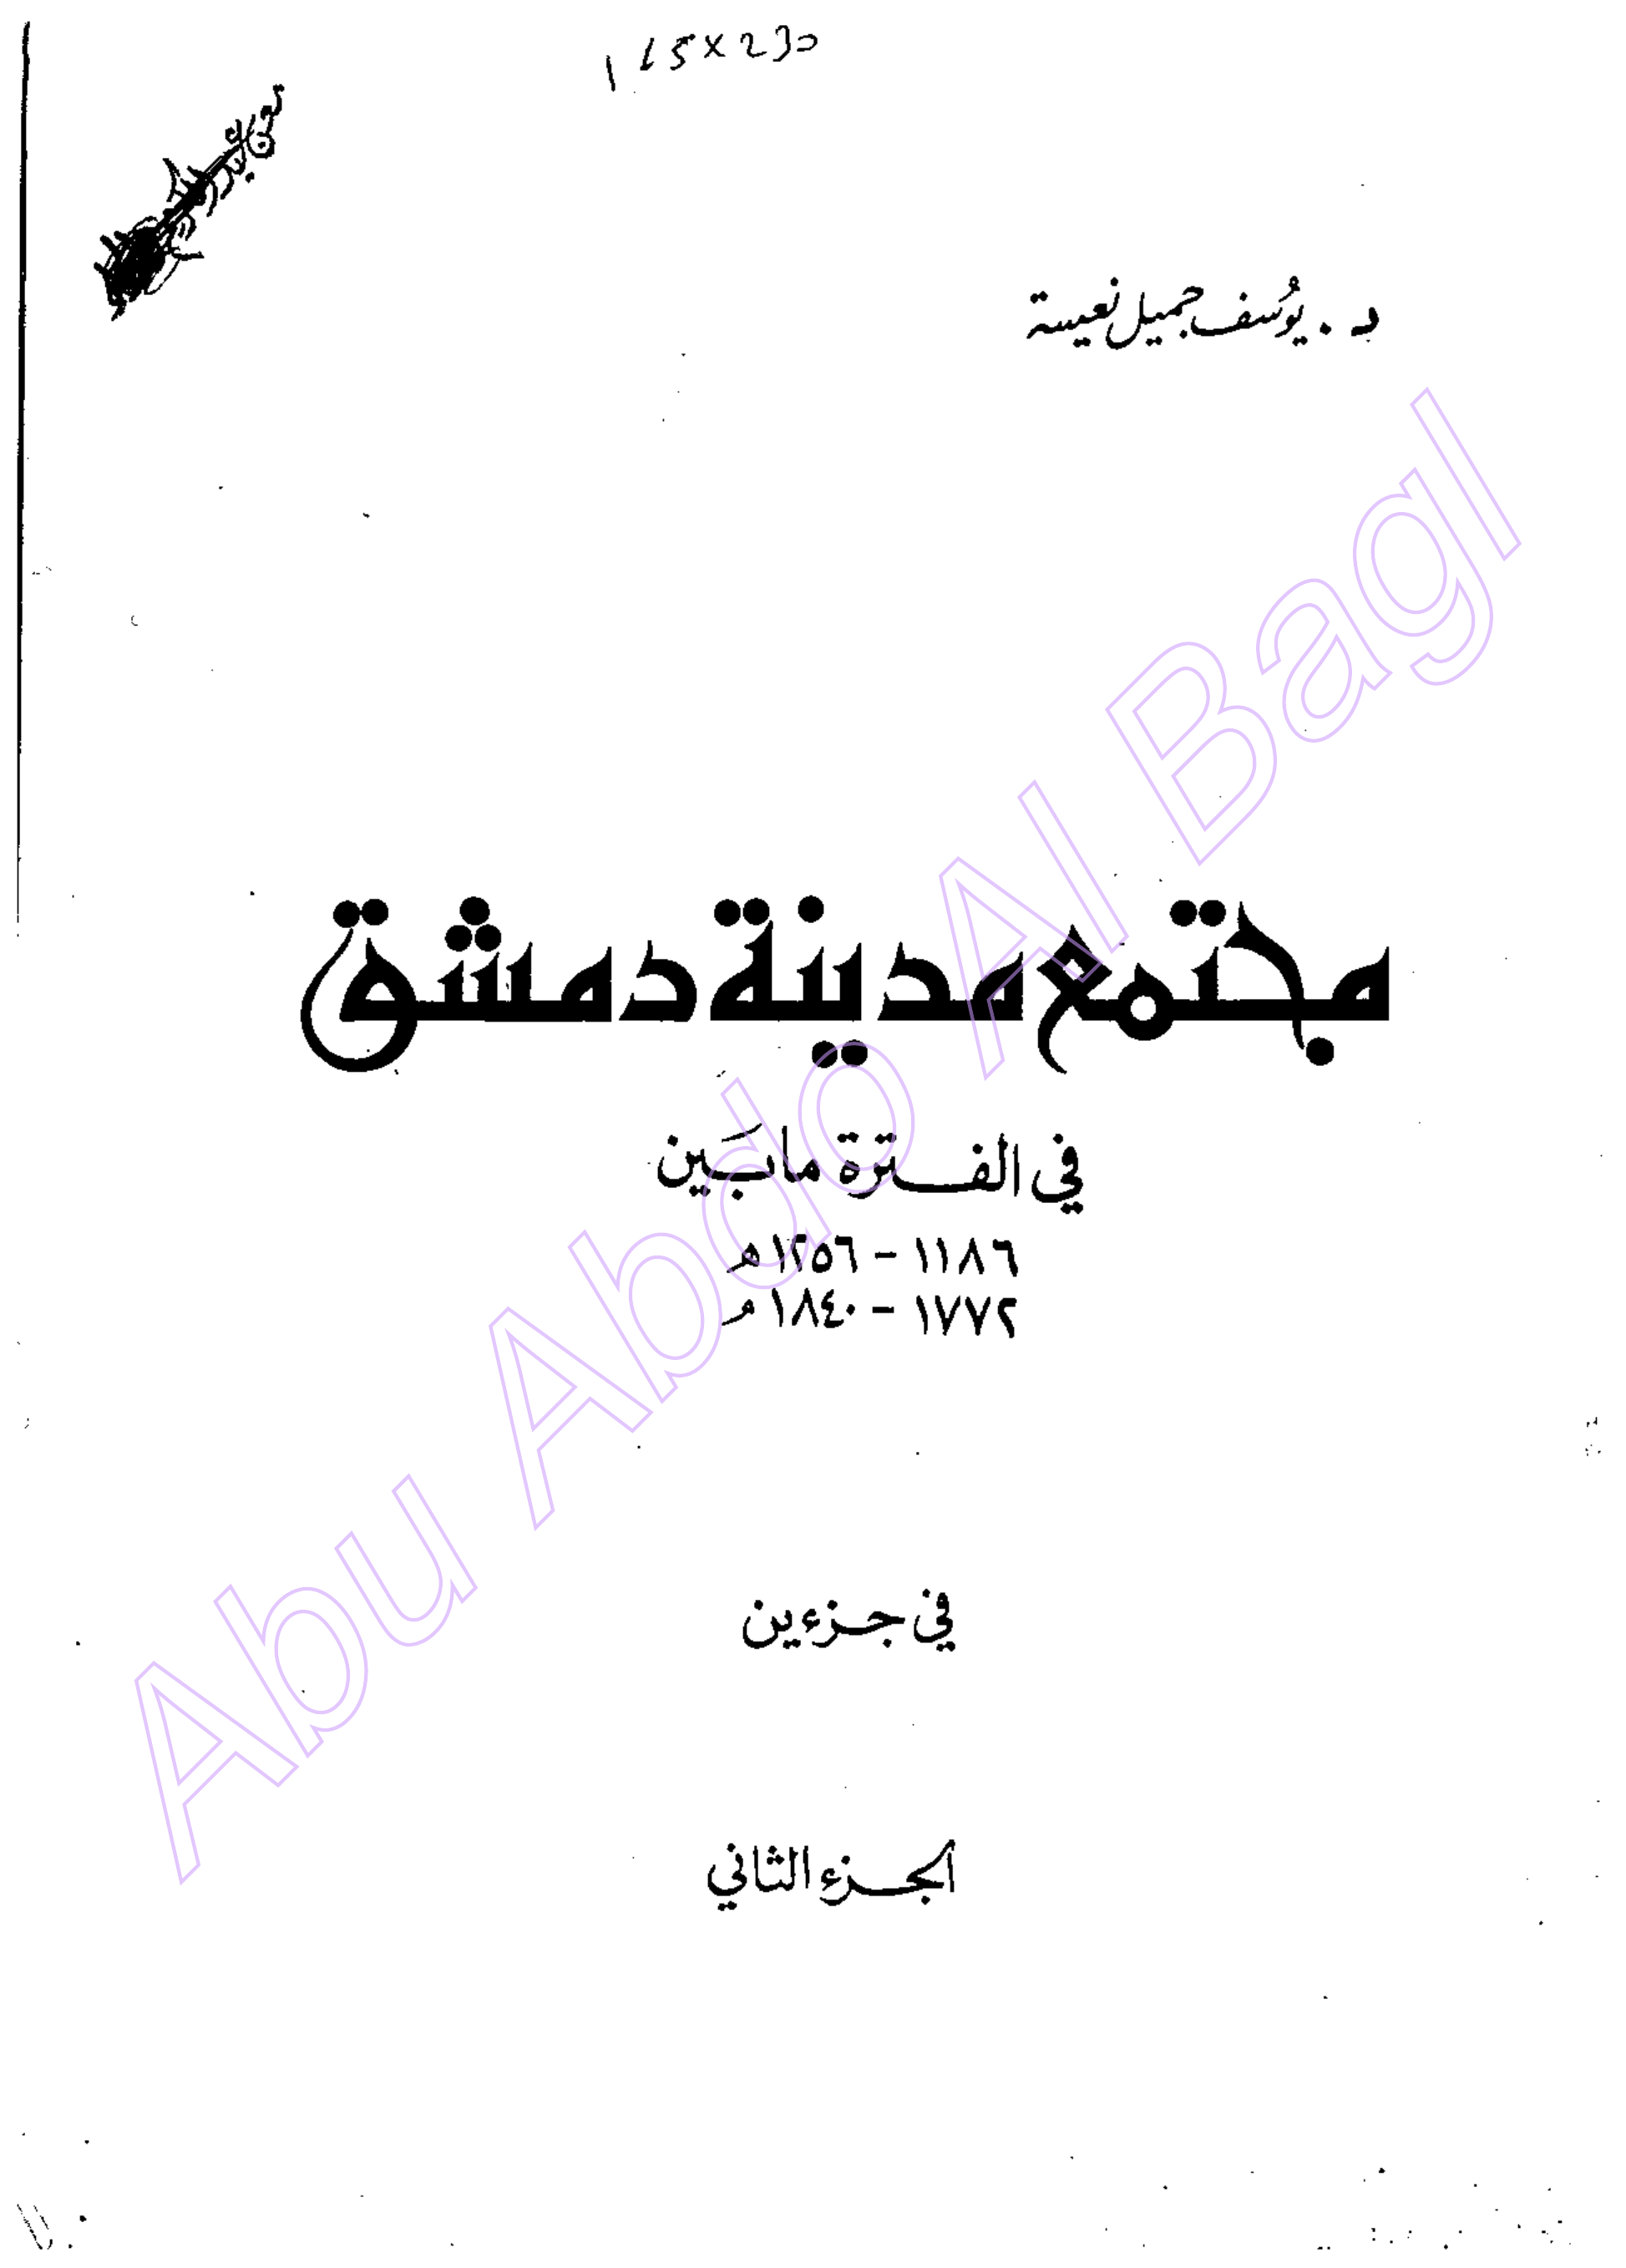 د. يوُسف جميل نعيسة
مجتمع مدينة دمشق
في الفترة مابَين
١١٨٦ - ١٢٥٦ هـ
١٧٧٢ - ١٨٤٠ م
في جزءين
الجزء الثاني
Abu Abdo Al Bagl